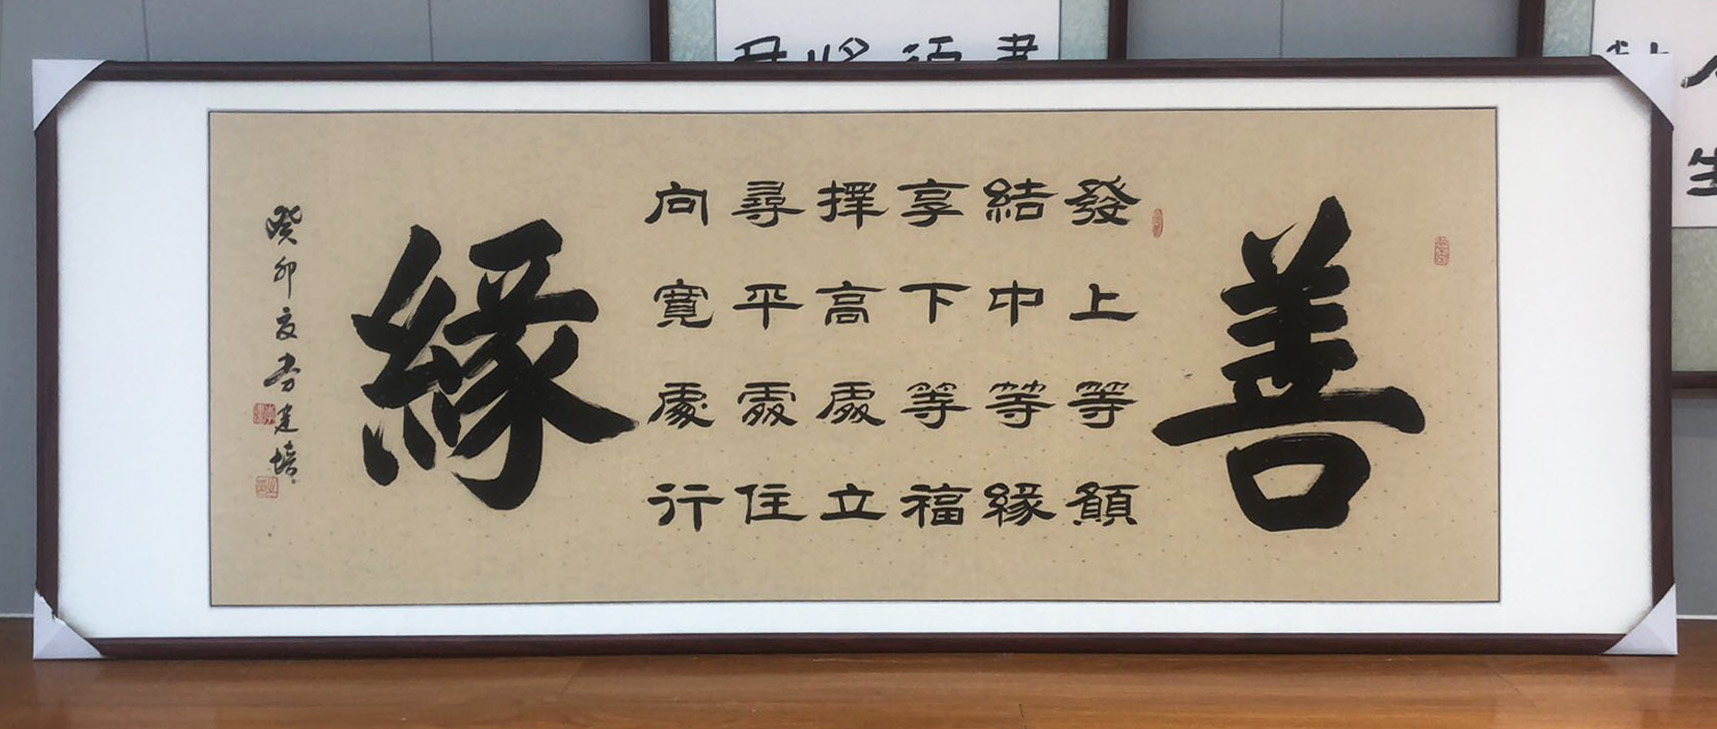 善
發上等願
結中等緣
享下等福
擇高處立
尋平處住
向寬處行
緣
癸卯夏李建培